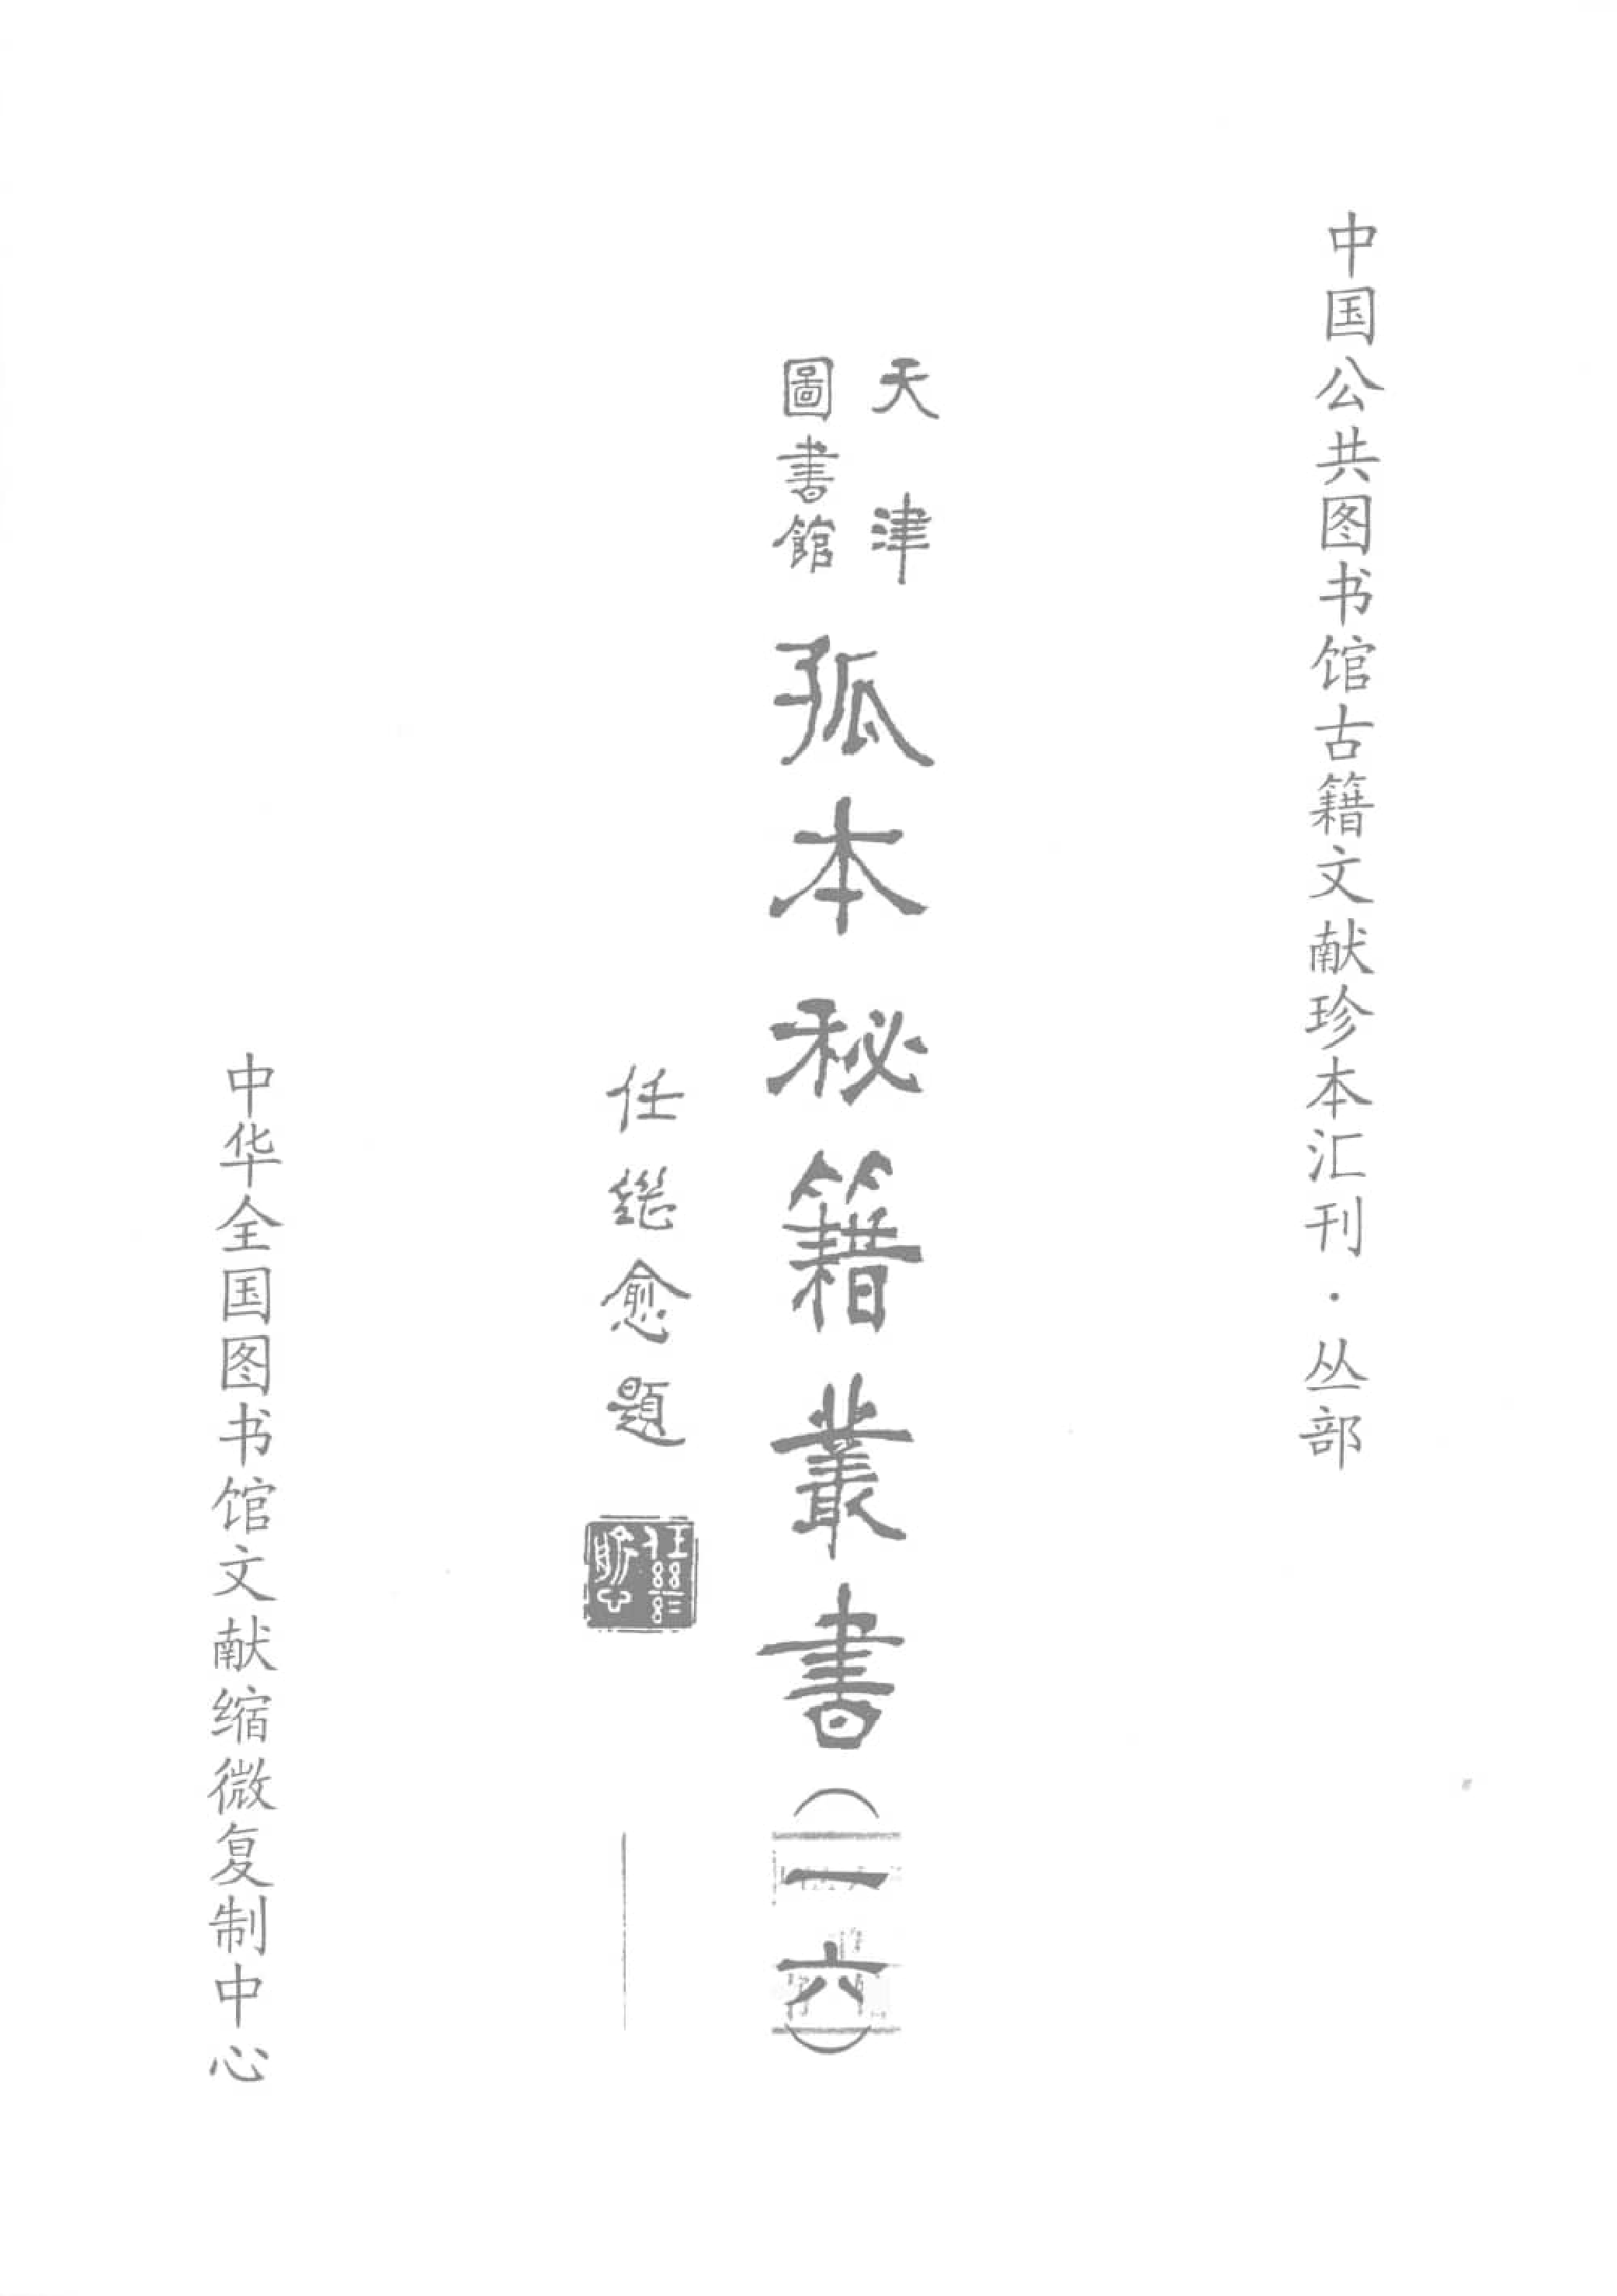 中国公共图书馆古籍文献珍本汇刊·丛部
天津
圖書館
孤本秘籍叢書(一六)
任继愈題
中华全国图书馆文献缩微复制中心